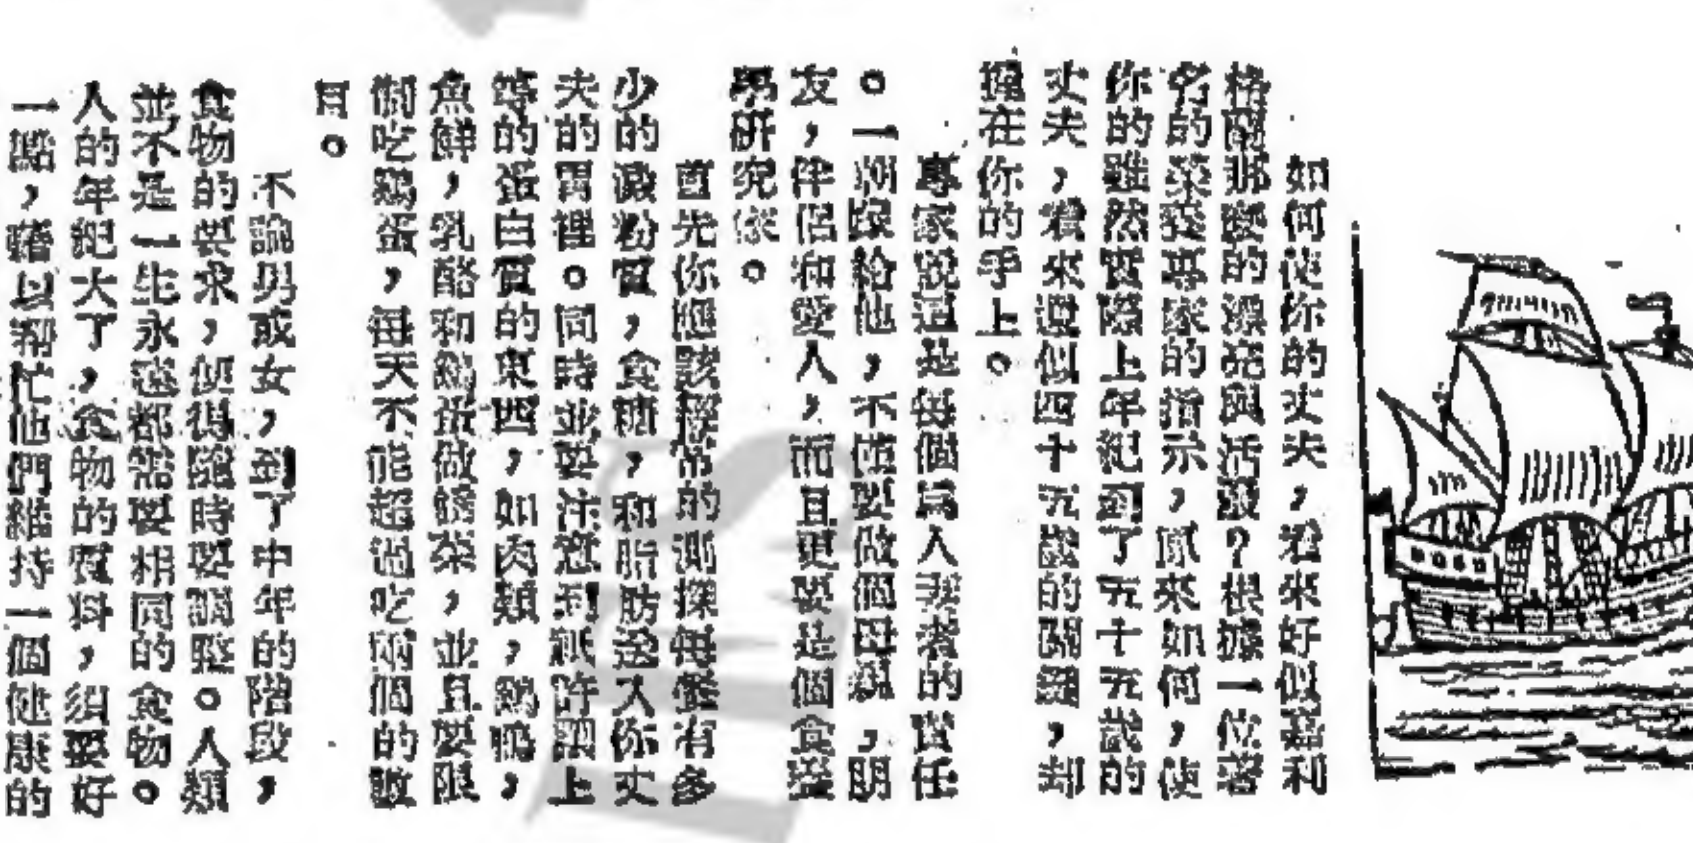 如何使你的丈夫，看來好似嘉利
格蘭那麼的漂亮與活潑？根據一位著
名的榮養專家的指示，原來如何，使
你的雖然實際上年紀到了五十五歲的
丈夫，看來還似四十五歲的關鍵，却
握在你的手上。
專家說這是每個為人妻者的責任
。一頓嫁給他，不僅要做個母親，朋
友，伴侶和愛人，而且更要是個食譜
學研究家。
首先你應該經常的測探每餐有多
少的澱粉質，食糖，和脂肪送入你丈
夫的胃裡。同時並要注意到祇許調上
等的蛋白質的東西，如肉類，鷄鴨，
魚鮮，乳酪和鷄蛋做的菜，並且要限
制吃鷄蛋，每天不能超過吃兩個的數
目。
不論男或女，到了中年的階段，
食物的要求，便得隨時要調整。人類
並不是一生永遠都需要相同的食物。
人的年紀大了，食物的質料，須要好
一點，藉以幫忙他們維持一個健康的